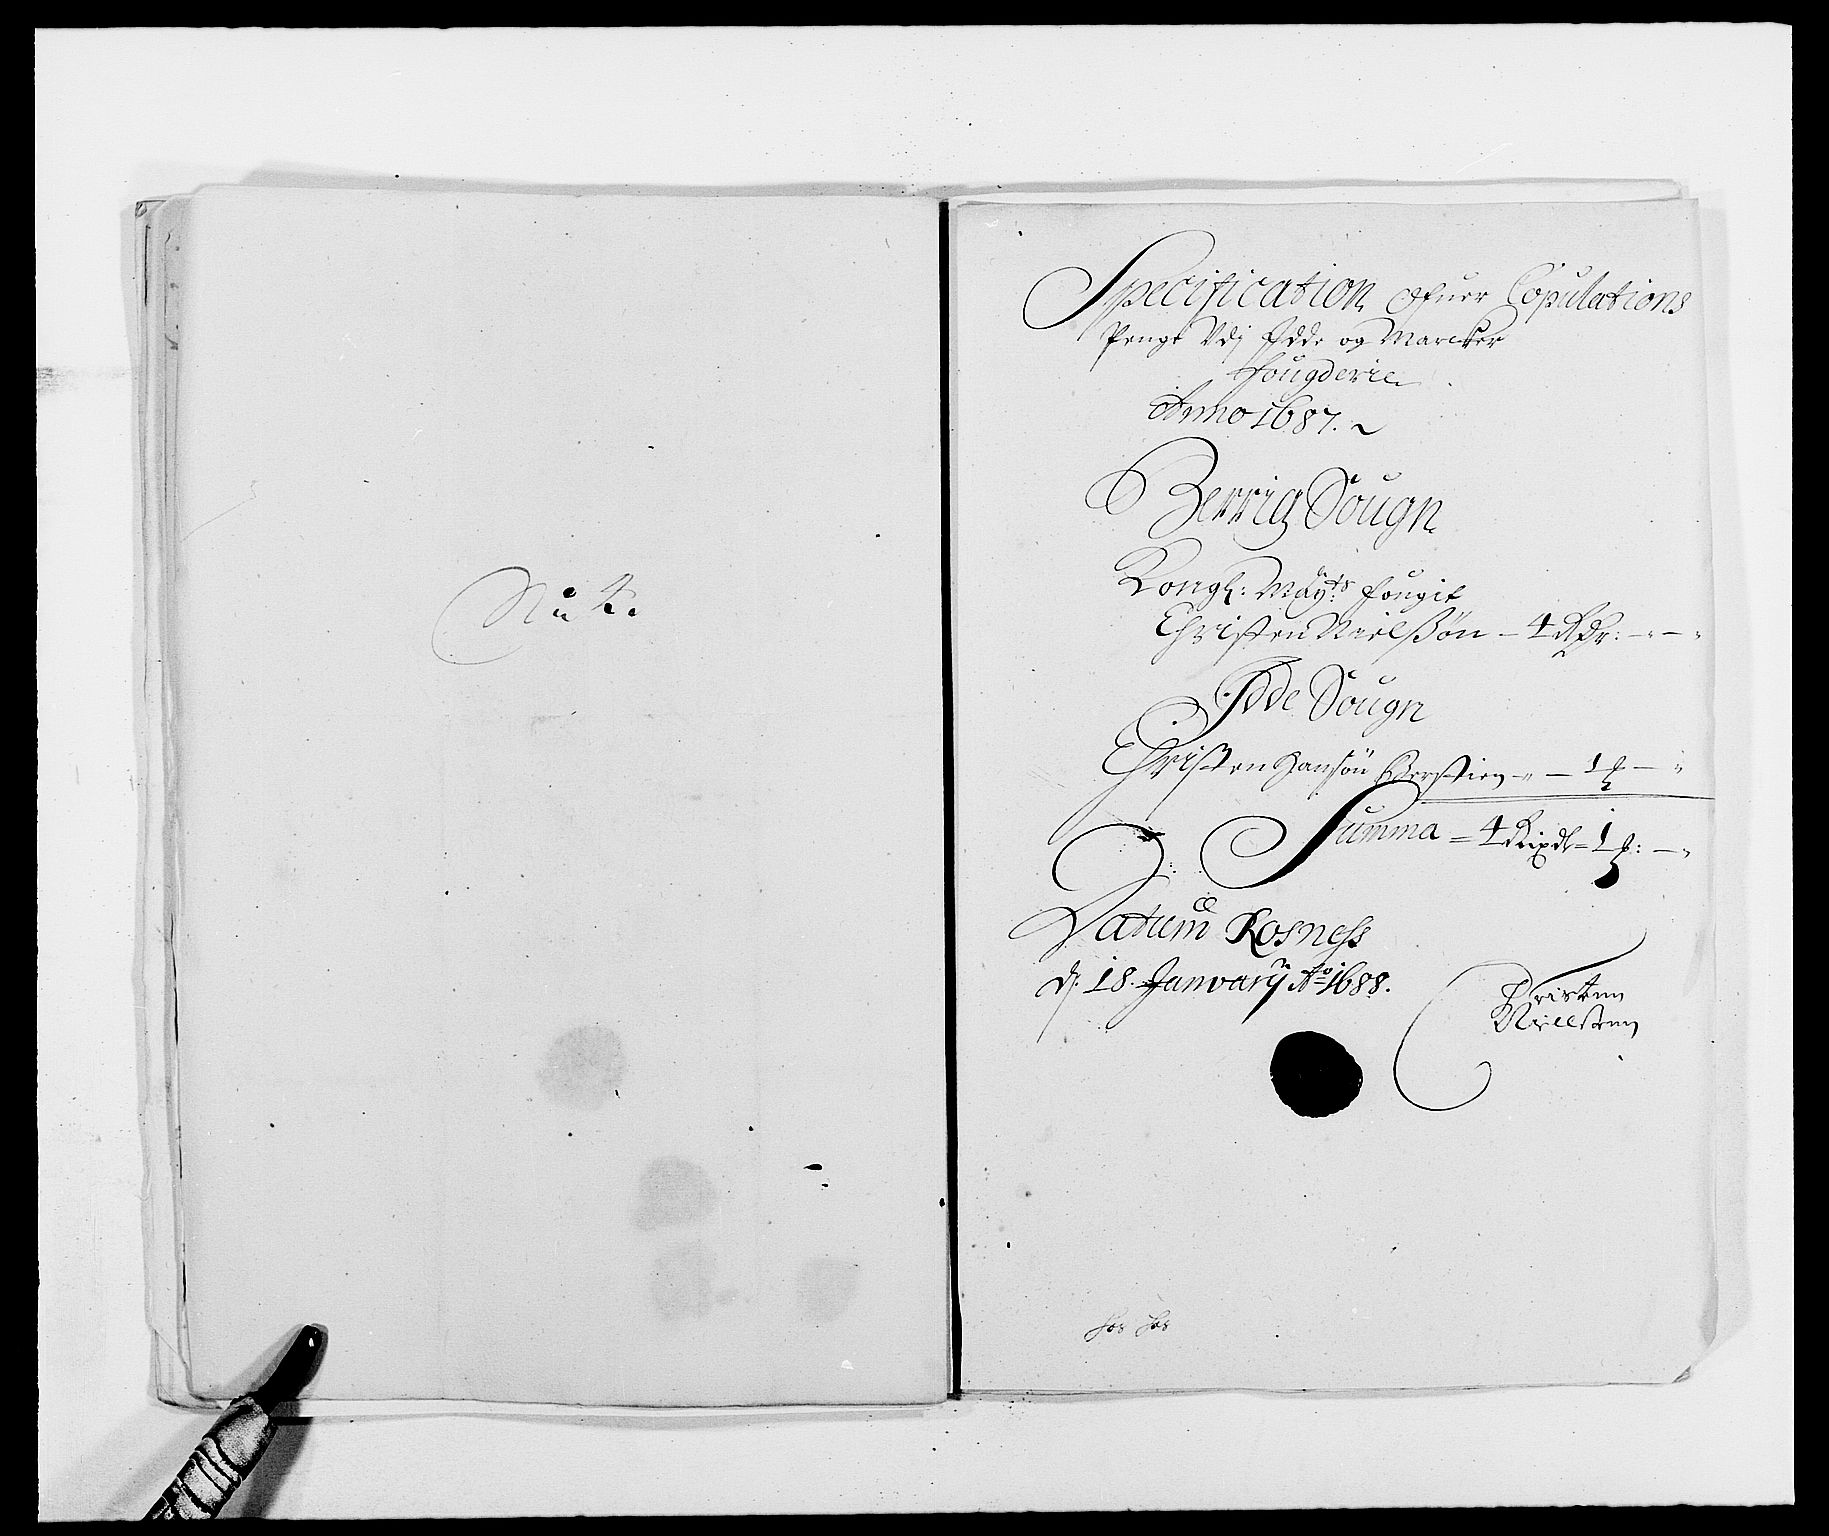 Specification ofuer Copulations
Penge Vdj Idde og Marcker
fougderie
Anno 1687.
Berrig Sougn
Kongl: Mayts fougit
Christen Nielsßøn - 4 Rdr: - - -
Idde Sougn
Christen Hansøn Berstien - - 1 ꝑ - -
Summa = 4 Rixdl = 1 ꝑ: - -
Datum Rosness
dj: 18. Januarij Ao 1688.
Christenn
Niellsenn